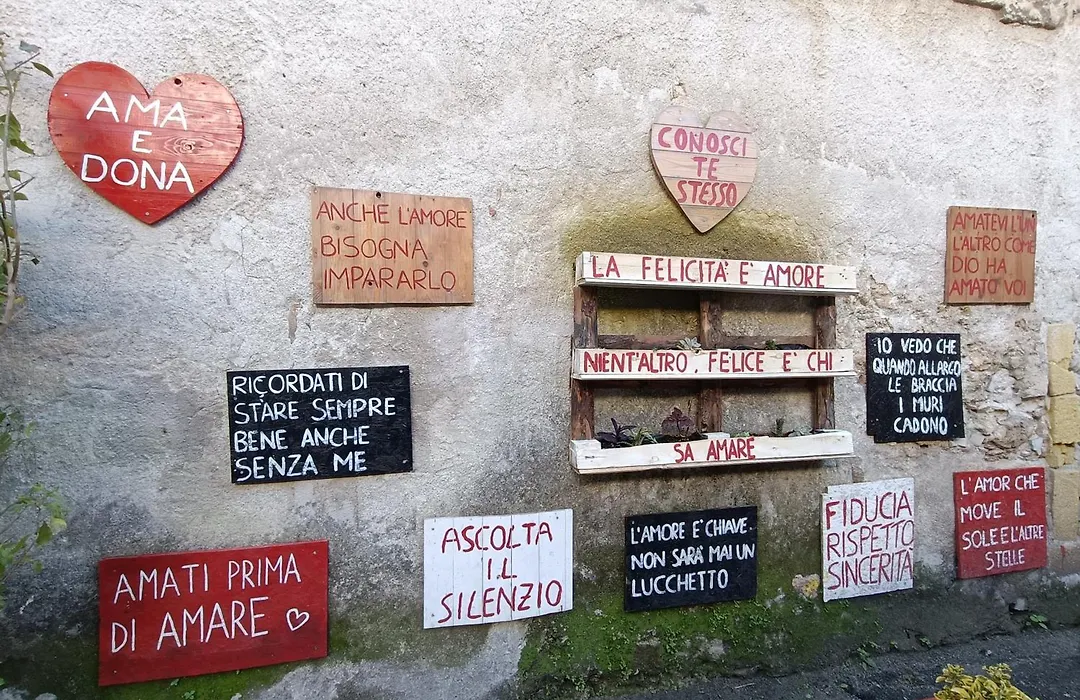 AMA
E
DONA
CONOSCI
TE
STESSO
ANCHE L'AMORE
BISOGNA
IMPARARLO
AMATEVI L'UN
L'ALTRO COME
DIO HA
AMATO VOI
LA FELICITA' E' AMORE
NIENT'ALTRO, FELICE E' CHI
SA AMARE
IO VEDO CHE
QUANDO ALLARGO
LE BRACCIA
I MURI
CADONO
RICORDATI DI
STARE SEMPRE
BENE ANCHE
SENZA ME
L'AMOR CHE
MOVE IL
SOLE E L'ALTRE
STELLE
FIDUCIA
RISPETTO
SINCERITÀ
ASCOLTA
IL
SILENZIO
L'AMORE E' CHIAVE
NON SARA' MAI UN
LUCCHETTO
AMATI PRIMA
DI AMARE